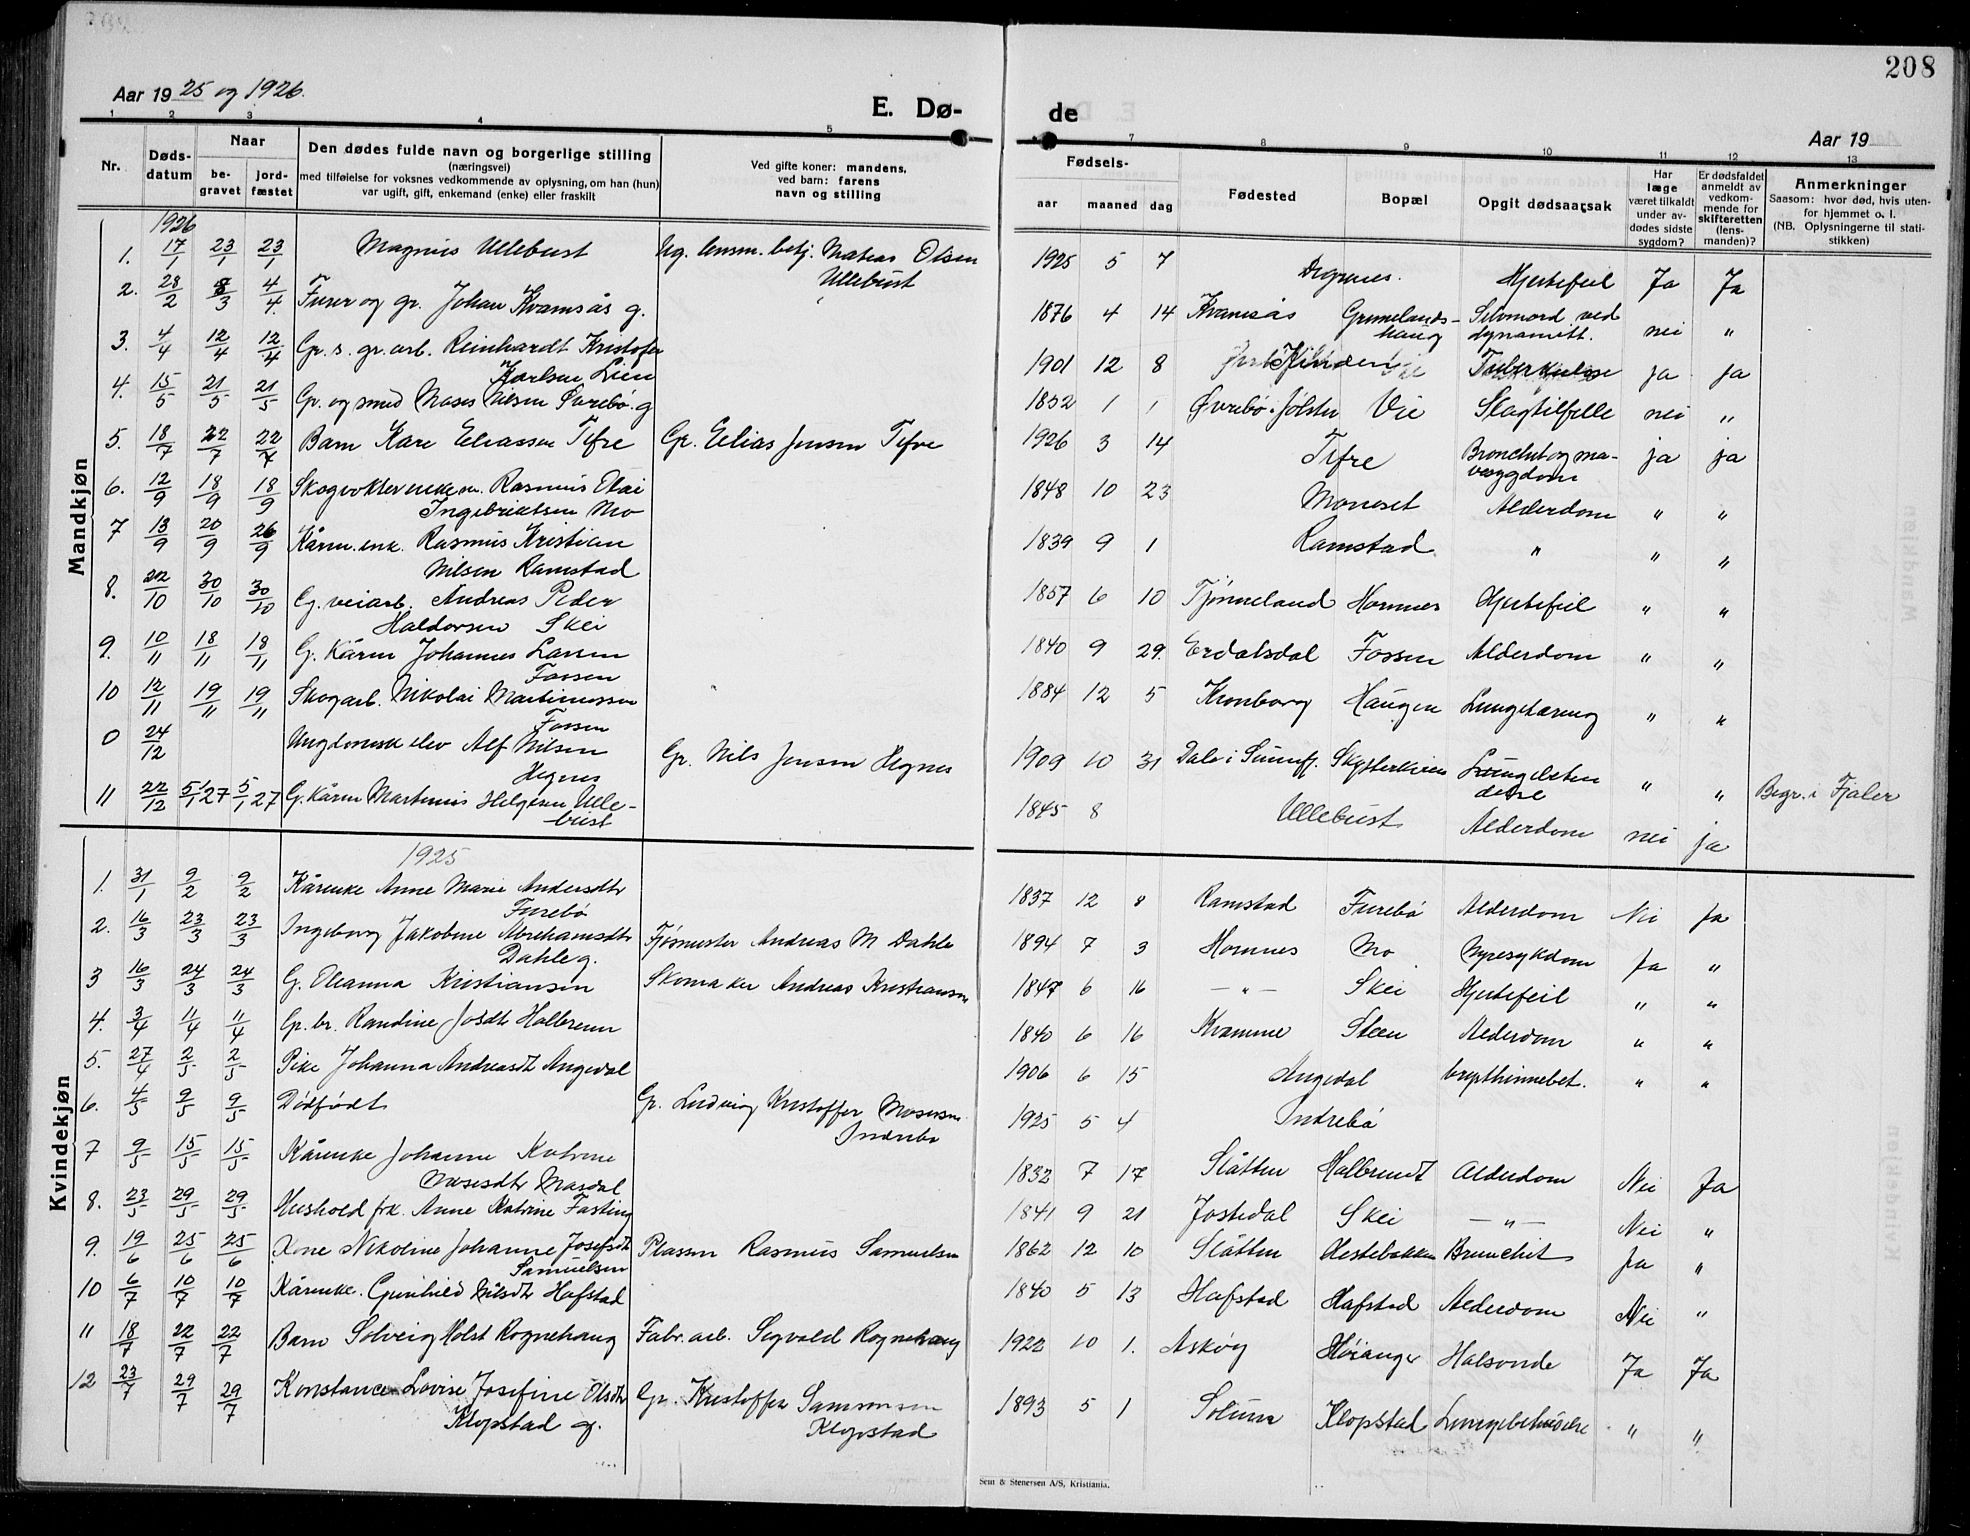 208
Aar 1925 og 1926.
E. Dø-
de
Aar 19
1 2 3 4 5 7 8 9 10 11 12 13
Nr. Dødsdatum Naar begravet jordfæstet
Den dødes fulde navn og borgerlige stilling
(næringsvei)
med tilføielse for voksnes vedkommende av oplysning, om han (hun)
var ugift, gift, enkemand (enke) eller fraskilt
Ved gifte koner: mandens,
ved barn: farens
navn og stilling
Fødsels-
aar maaned dag
Fødested
Bopæl
Opgit dødsaarsak
Har læge været tilkaldt under avdødes sidste sygdom?
Er dødsfaldet anmeldt av vedkommende for skifteretten (lensmanden)?
Anmerkninger
Saasom: hvor død, hvis utenfor hjemmet o. l.
(NB. Oplysningerne til statistikken)
Mandkjøn
1926
1. 17/1 23/1 23/1 Magnus Ullebust Ug. lensm. betj. Matias Olsen Ullebust 1925 5 7 Degnes. Hjertefeil Ja Ja
2. 28/2 8/3 4/4. Furer og gr. Johan Kvamsås g. 1876 4 14 Kvamsås Grimelandshaug Selvmord ved dynamitt. nei "
3. 4/4 12/4 12/4 Gr. s. gr.arb. Reinhardt Kristofer Karlsen Lien 1901 12 8 Tuberkulose ja ja
4. 15/5 21/5 21/5 Gr. og smed Moses Nilsen Øvrebö g 1852 1 1 Øvrebö i Jölster Vie Slagtilfelle nei "
5. 18/7 22/7 22/7 Barn Kåre Eliassen Tefre Gr. Elias Jensen Tefre 1926 3 14 Tefre Bronchit og mavesygdom ja ja
6. 12/9 18/9 18/9 Skogvokter enkem. Rasmus Elai Ingebriktsen Mo 1848 10 23 Moneset Alderdom " "
7 13/9 20/9 26/9 Kårm. enk. Rasmus Kristian Nilsen Ramstad 1839 9 1 Ramstad " " "
8. 22/10 30/10 30/10 G. veiarb. Andreas Peder Haldorsen Skei 1857 6 10 Tjönneland Hornnes Hjertefeil " "
9. 10/11 18/11 18/11 G. Kårm Johannes Larsen Fossen 1840 9 29. Erdalsdal Fossen Alderdom " "
10 12/11 19/11 19/11 Skogarb. Nikolai Martinussen Fossen 1884 12 5 Kronborg Haugen Lungetæring " "
0 24/12 Ungdomssk elev Alf Nilsen Hegnes Gr. Nils Jensen Hegnes 1909 10 31 Dale i Sunnf. " " Begr. i Fjaler
11 22/12 5/1 27 5/1 27 G. Kårm Martinus Helgesen Ullebust 1845 8 Ullebust Alderdom nei ja
Kvindekjøn
1925
1. 31/1 9/2 9/2 Kårenke Anne Marie Andersdtr Furebö 1837 12 8 Ramstad Furebö Alderdom Nei Ja
2. 16/3 23/3 23/3 Ingeborg Jakobine Abrahamsdtr Dahle g. Fjösmester Andreas M Dahle 1894 7 3 Hornnes Mo Nyresykdom Ja "
3 16/3 24/3 24/3 G. Oleanna Kristiansen Skomaker Andreas Kristiansen 1847 6 16 — " — Skei Hjertefeil " "
4. 3/4 11/4 11/4 Gr. br. Randine Josdtr Halbrenn 1840 6 16 Kvamme Steen Alderdom " "
5. 27/4 2/5 2/5 Pike Johanna Andreasdt Angedal 1906 6 15 Angedal brysthinnebet. " "
6. 4/5 9/5 9/5 Dödfödt Gr. Ludvig Kristoffer Mosesen Indrebö 1925 5 4 Indrebö
7 9/5 15/5 15/5 Kårenke Johanne Katrine Mosesdtr Mardal 1832 7 17 Slåtten Halbrendt Alderdom Nei Ja
8. 23/5 29/5 29/5 Hushold frk. Anne Katrine Fasting 1841 9 21 Jostedal Skei — " — Nei "
9. 19/6 25/6 25/6 Kone Nikoline Johanne Josefsdtr Samuelsen Plassm Rasmus Samuelsen 1862 12 10 Slåtten Hestebakken Brunchit Ja "
10 6/7 10/7 10/7 Kårenke. Gunhild Nilsdtr Hafstad 1840 5 13 Hafstad Hafstad Alderdom Nei "
11 18/7 22/7 22/7 Barn Solveig Holst Rognehaug Fabr. arb. Sigvald Rognehaug 1922 10 1. Askög Höianger Halsonde Ja Ja
12 23/7 29/7 29/7 Konstance Lovise Josefine Olsdtr Klopstad g. Gr. Kristoffer Samsonsen Klopstad 1893 5 1 Solum Klopstad Lungebetændelse " "
Sem & Stenersen A/S, Kristiania.